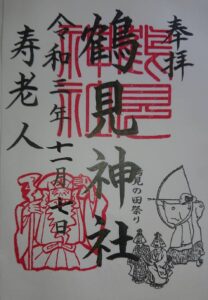 奉拝
鶴見神社
令和三年十一月七日
寿老人
鶴見の田祭り